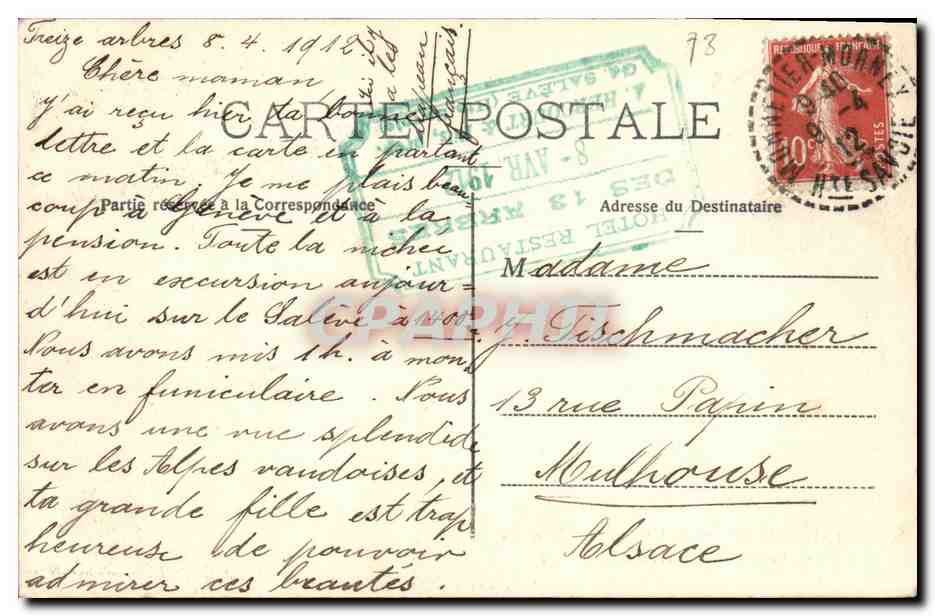 Treize arbres 8.4.1912
Chère maman
J'ai reçu hier ta bonne
lettre et la carte en partant
ce matin. Je me plais beau-
coup à Genève et à la
pension. Toute la nichée
est en excursion aujour-
d'hui sur le Salève à 1400
Nous avons mis 1h. à mon-
ter en funiculaire. Nous
avons une vue splendide
sur les Alpes vaudoises, et
ta grande fille est trop
heureuse de pouvoir
admirer ces beautés.
Ici il y
a les
drapeau
français
73
CARTE POSTALE
Partie réservée à la Correspondance
Adresse du Destinataire
HOTEL RESTAURANT
DES 13 ARBRES
8 - AVR. 1912
Gd SALÈVE
REPUBLIQUE FRANÇAISE
10c
POSTES
MONNETIER-MORNEX
8 -4
12
Hte SAVOIE
Madame
J. Tischmacher
13 rue Papin
Mulhouse
Alsace
CPAPHIL